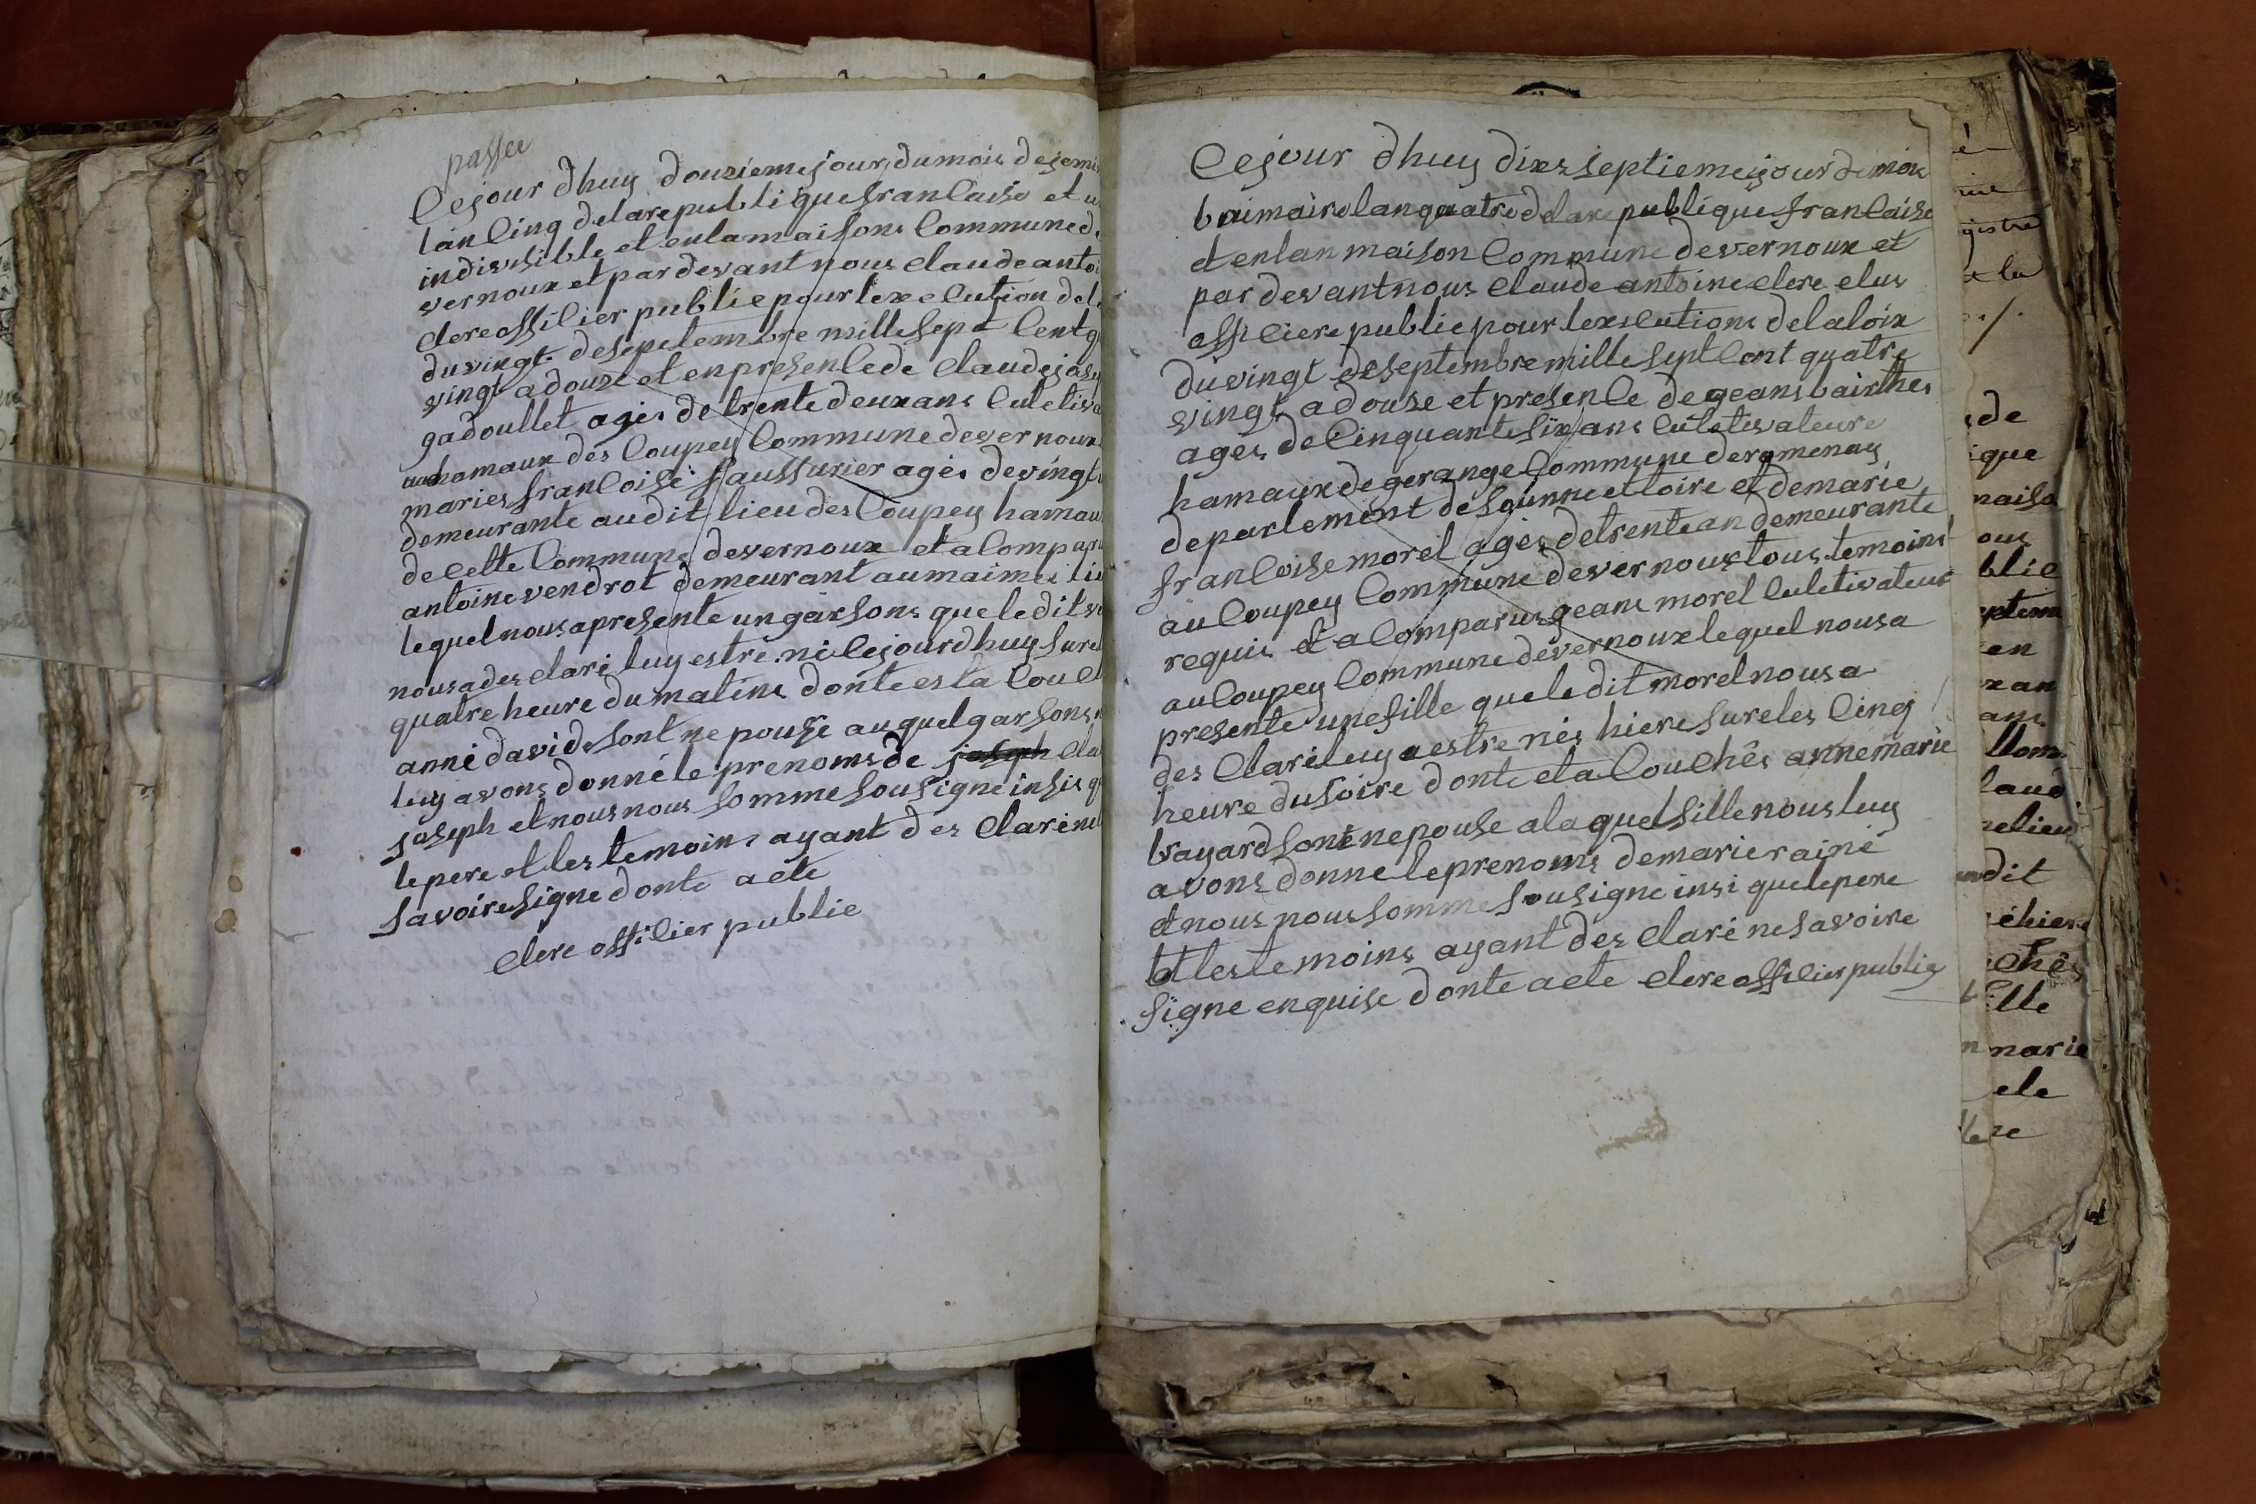 passee
Cejour dhuy douziemejour dumois dejerni
lan Cinq delarepublique franCaise et u
indivisible et enlamaisons Communede
vernoux et pardevant nous Claude antoi
Clere offiCier publie pour lexeCution del
duvingt desepetembre millesept Centq
vingt adouze et enpresenCede Claudejose
gadoullet ages de trentedeuxans Culetiva
auhamaux des Coupey Commune devernoux
maries franCoise faussurier ages devingt
demeurante audit lieu des Coupey hamau
deCette Commune devernoux et a Compar
antoine vendrot demeurant aumaime lie
lequelnousapresente ungarsons queledit ve
nousades Clare luy estre ne Cejourdhuy sure
quatre heure du matins donte esta CouCh
anne david sont nepouse auquel garsons n
luy avons donné le prenoms de joseph Cla
joseph et nous nous somme sousigne insis q
lepere et les temoins ayant des Clare ne
savoire signe donte acte
Clere offiCier publie
Cejour dhuy dixsseptiemejour demois
brimaire lanquatre delarepublique franCaise
et enlan maison Commune devernoux et
par devantnous Claude antoine Clere elus
offiCiere publie pour lexeCutions delaloix
duvingt deseptembre mille sept Cent quatre
vingt adouze et presenCe de geans bairthes
ages deCinquantesix ans Culetivateure
hamaux degerange Commune deromenay
departement desoinne et loire et demarie
franCoise morel ages detrentean demeurante
auCoupey Commune devernoux tous temoins
requis et aComparus geans morel Culetivateur
auCoupey Commune devernoux lequel nousa
presente unefille queledit morel nousa
des Clare luy a estre nes hiere surelles Cinq
heure dusoire donte eta CouChés annemarie
bayard sontnepouse alaquel fille nous luy
avons donne leprenoms demarieraine
et nous nous somme sousigne insi quelepere
et lestemoins ayant des Clare ne savoire
signe enquise donte acte Clere offiCier publie
gistre
de
ique
maiso
ous
blie
eptem
en
ans
dit
hiere
Chés
ille
marie